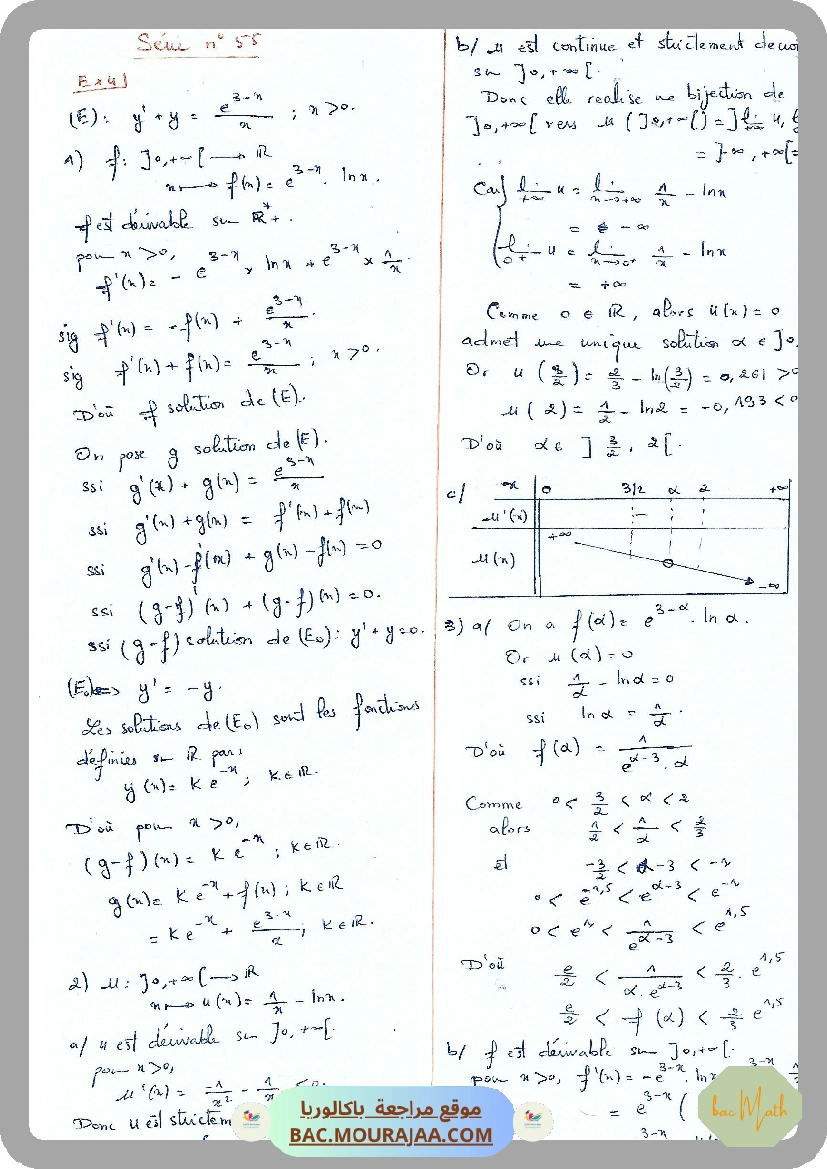 Série n° 55
Ex 4)
(E): y' + y = e^{3-x}/x ; x > 0.
1) f: ]0,+∞[ → ℝ
x ↦ f(x) = e^{3-x} . ln x.
f est dérivable sur ℝ*+.
pour x > 0,
f'(x) = - e^{3-x} × ln x + e^{3-x} × 1/x.
sig f'(x) = -f(x) + e^{3-x}/x.
sig f'(x) + f(x) = e^{3-x}/x ; x > 0.
D'où f solution de (E).
On pose g solution de (E).
ssi g'(x) + g(x) = e^{3-x}/x
ssi g'(x) + g(x) = f'(x) + f(x)
ssi g'(x) - f'(x) + g(x) - f(x) = 0
ssi (g-f)'(x) + (g-f)(x) = 0.
ssi (g-f) solution de (E₀): y' + y = 0.
(E₀) ⟺ y' = -y.
Les solutions de (E₀) sont les fonctions
définies sur ℝ par:
y(x) = K e^{-x} ; K ∈ ℝ.
D'où pour x > 0,
(g-f)(x) = K e^{-x} ; K ∈ ℝ.
g(x) = K e^{-x} + f(x) ; K ∈ ℝ
= K e^{-x} + e^{3-x}/x ; K ∈ ℝ.
2) u: ]0,+∞[ → ℝ
x ↦ u(x) = 1/x - ln x.
a/ u est dérivable sur ]0,+∞[.
pour x > 0,
u'(x) = -1/x² - 1/x < 0.
Donc u est strictem
b/ u est continue et strictement décroi
sur ]0,+∞[.
Donc elle réalise une bijection de
]0,+∞[ vers u(]0,+∞[) = ]lim_{+∞} u, l
= ]-∞, +∞[ =
Car { lim_{+∞} u = lim_{x→+∞} 1/x - ln x
= -∞
lim_{0+} u = lim_{x→0+} 1/x - ln x
= +∞
Comme 0 ∈ ℝ, alors u(x) = 0
admet une unique solution α ∈ ]0,
Or u(3/2) = 2/3 - ln(3/2) = 0,261 > 0
u(2) = 1/2 - ln 2 = -0,193 < 0
D'où α ∈ ]3/2, 2[.
c/ x 0 3/2 α 2 +∞
u'(x) -
u(x) +∞ 0 -∞
3) a/ On a f(α) = e^{3-α} . ln α.
Or u(α) = 0
ssi 1/α - ln α = 0
ssi ln α = 1/α.
D'où f(α) = 1/(e^{α-3} . α)
Comme 0 < 3/2 < α < 2
alors 1/2 < 1/α < 2/3
et -3/2 < α-3 < -1
0 < e^{-1,5} < e^{α-3} < e^{-1}
0 < e^1 < 1/e^{α-3} < e^{1,5}
D'où e/2 < 1/(α . e^{α-3}) < 2/3 . e^{1,5}
e/2 < f(α) < 2/3 e^{1,5}
b/ f est dérivable sur ]0,+∞[.
pour x > 0, f'(x) = -e^{3-x} . ln x
= e^{3-x} (
موقع مراجعة باكالوريا
BAC.MOURAJAA.COM
bac Math